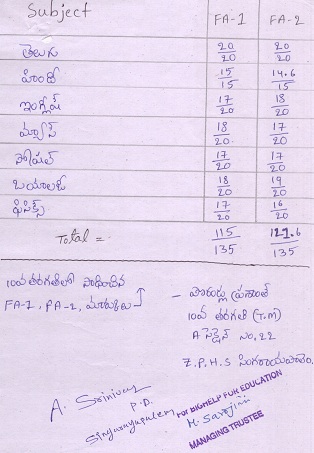 Subject FA-1 FA-2
తెలుగు 20/20 20/20
హిందీ 15/15 14.6/15
ఇంగ్లీష్ 17/20 18/20
మ్యాథ్స్ 18/20 17/20
సోషల్ 17/20 17/20
బయాలజీ 18/20 19/20
ఫిజిక్స్ 17/20 16/20
Total = 115/135 121.6/135
10వ తరగతిలో సాధించిన
FA-1, FA-2, మార్కులు ↑
ప్రశాంత్
10వ తరగతి (T.M)
A సెక్షన్ No, 22
Z.P.H.S సింగరాయపాలెం.
A. Srinivas
P.D.
Singarayapalem
For BIGHELP FOR EDUCATION
M. Sarojini
MANAGING TRUSTEE